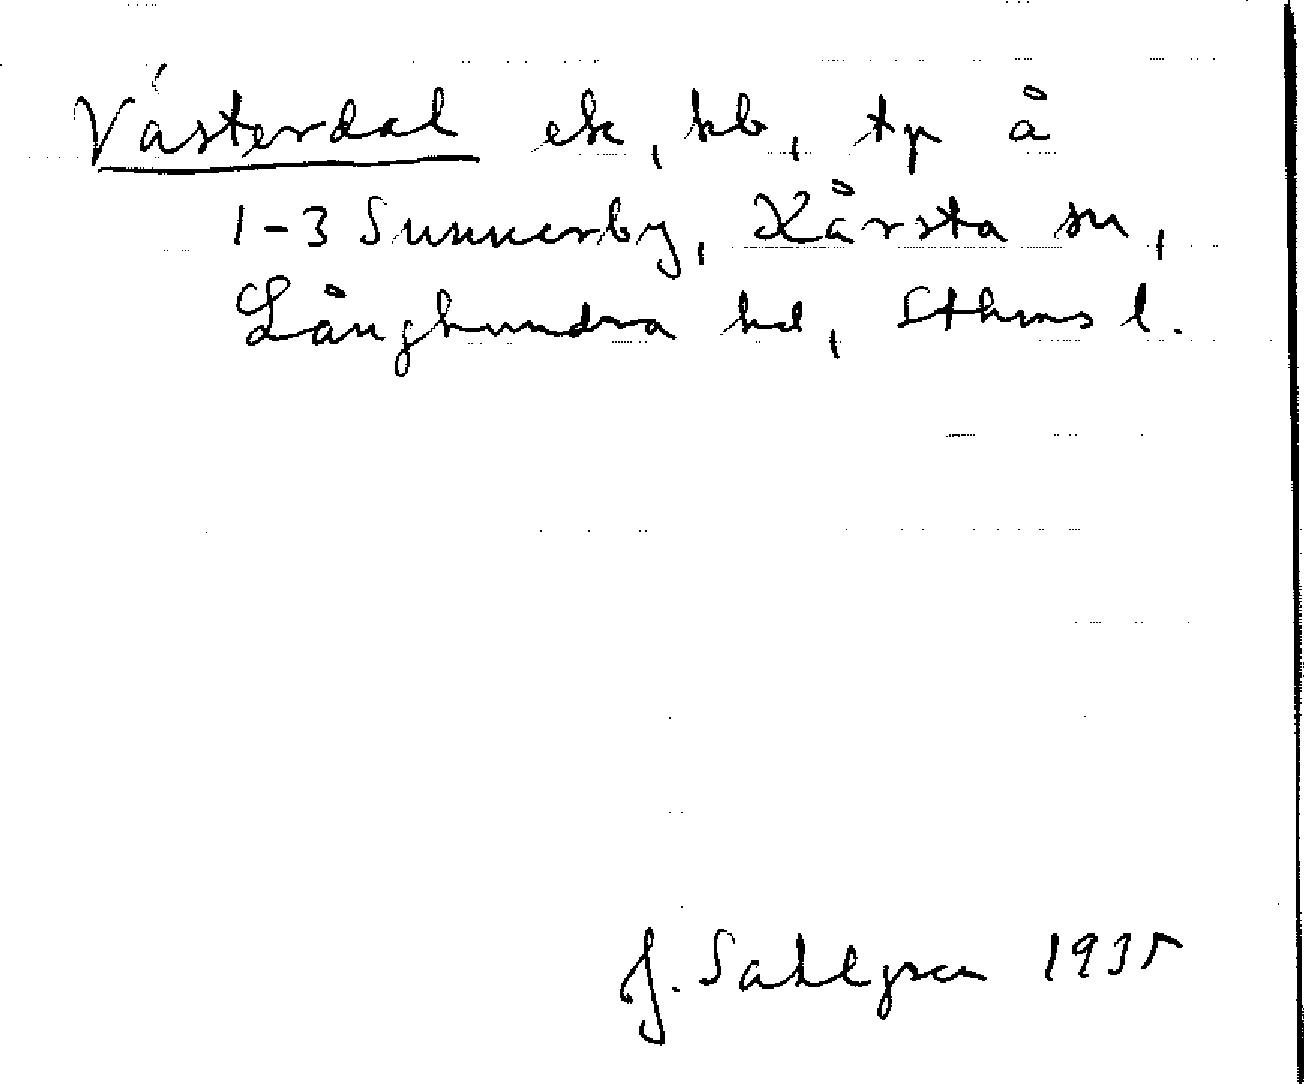 Västerdal ek, kb, tp å
1-3 Sunnerby, Kårsta sn,
Långhundra hd, Sthms l.
J. Sahlgren 1935